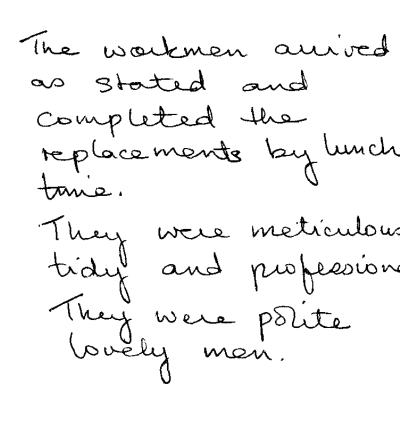 The workmen arrived
as stated and
completed the
replacements by lunch
time.
They were meticulous
tidy and profession
They were polite
lovely men.